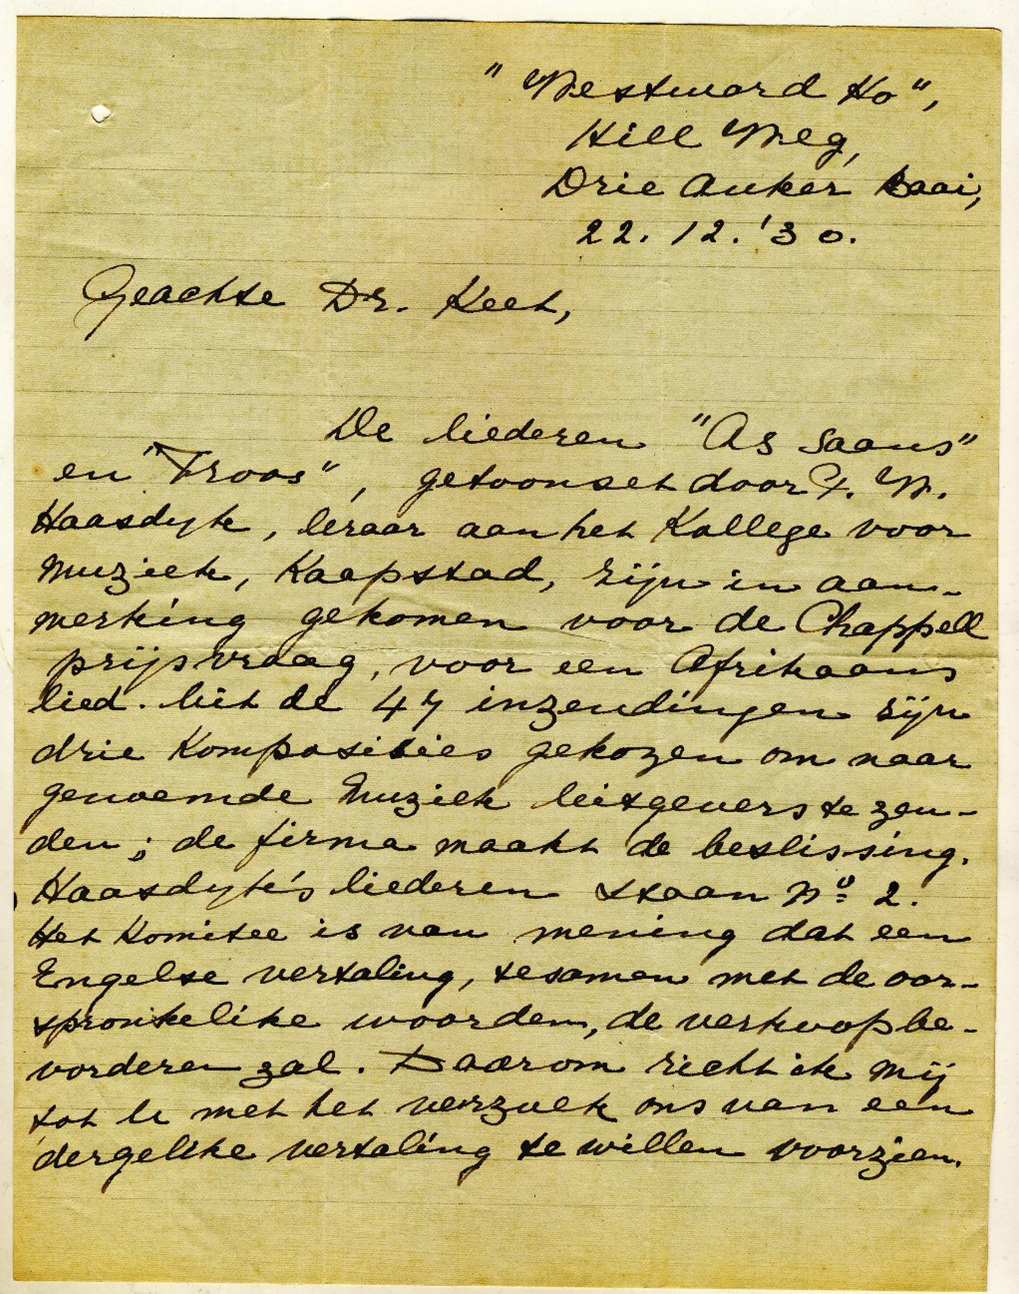 "Westward Ho",
Hill Weg,
Drie Anker Baai,
22. 12. '30.
Geachte Dr. Keet,
De liederen "As Saans"
en "Troos", getoonset door F. W.
Haasdyk, leraar aan het Kollege voor
Muziek, Kaapstad, zijn in aan-
merking gekomen voor de Chappell
prijsvraag, voor een Afrikaans
lied. Uit de 47 inzendingen zijn
drie Komposities gekozen om naar
genoemde Muziek Uitgevers te zen-
den; de firma maakt de beslissing.
Haasdyk's liederen staan No 2.
Het Komitee is van mening dat een
Engelse vertaling, tesamen met de oor-
spronkelike woorden, de verkoop be-
vorderen zal. Daarom richt ik mij
tot U met het verzoek ons van een
dergelike vertaling te willen voorzien.